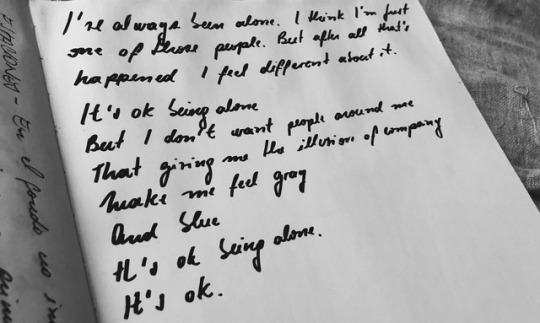 I've always been alone. I think I'm just
one of those people. But after all that's
happened I feel different about it.
It's ok being alone
But I don't want people around me
That giving me the illusion of company
make me feel gray
And blue
It's ok being alone.
It's ok.
En el fondo